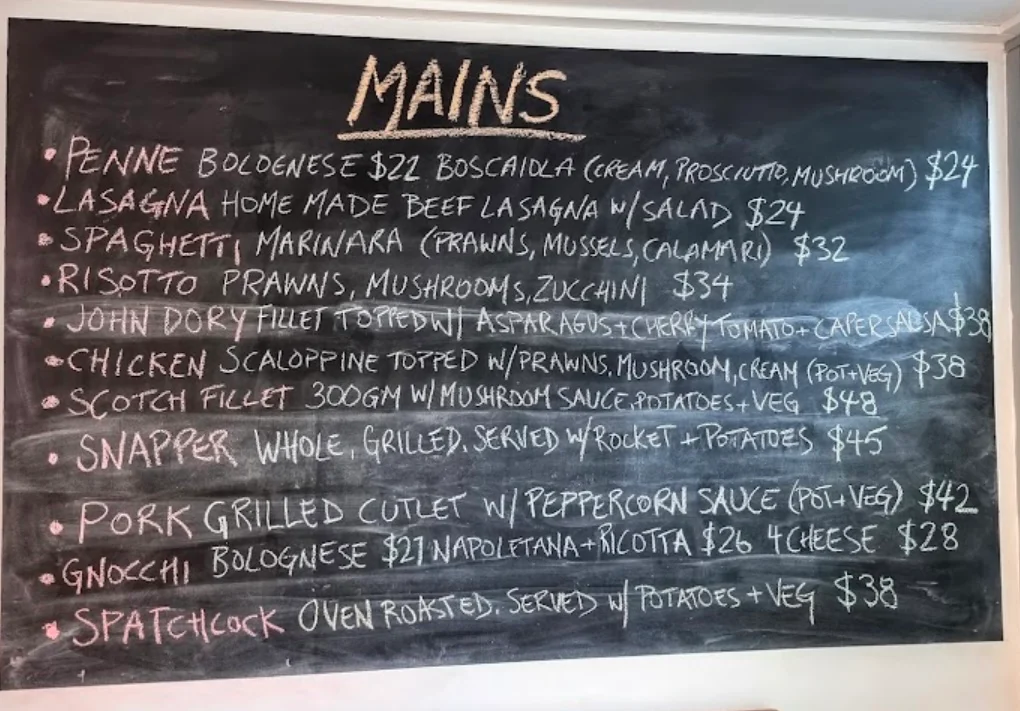 MAINS
• PENNE BOLOENESE $22 BOSCAIOLA (CREAM, PROSCIUTTO, MUSHROOM) $24
• LASAGNA HOME MADE BEEF LASAGNA W/ SALAD $24
• SPAGHETTI MARINARA (PRAWNS, MUSSELS, CALAMARI) $32
• RISOTTO PRAWNS, MUSHROOMS, ZUCCHINI $34
• JOHN DORY FILLET TOPPED W/ ASPARAGUS + CHERRY TOMATO + CAPER SALSA $38
• CHICKEN SCALOPPINE TOPPED W/ PRAWNS, MUSHROOM, CREAM (POT+VEG) $38
• SCOTCH FILLET 300GM W/ MUSHROOM SAUCE, POTATOES + VEG $48
• SNAPPER WHOLE, GRILLED, SERVED W/ ROCKET + POTATOES $45
• PORK GRILLED CUTLET W/ PEPPERCORN SAUCE (POT+VEG) $42
• GNOCCHI BOLOGNESE $27 NAPOLETANA + RICOTTA $26 4 CHEESE $28
• SPATCHCOCK OVEN ROASTED, SERVED W/ POTATOES + VEG $38